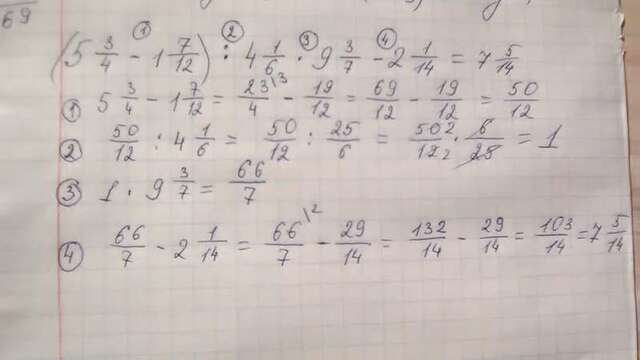 69
(5 3/4 - 1 7/12) : 4 1/6 · 9 3/7 - 2 1/14 = 7 5/14
① 5 3/4 - 1 7/12 = 23\3/4 - 19/12 = 69/12 - 19/12 = 50/12
② 50/12 : 4 1/6 = 50/12 : 25/6 = 50 2/12 2 · 6/25 = 1
③ 1 · 9 3/7 = 66/7
④ 66/7 - 2 1/14 = 66\2/7 - 29/14 = 132/14 - 29/14 = 103/14 = 7 5/14